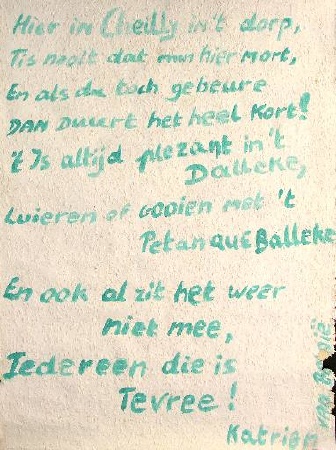 Hier in Cheilly in't dorp,
Tis nooit dat men hier mort,
En als da toch gebeure
DAN Duurt het heel Kort!
't Is altijd plezant in't
Dalleke,
Luieren of Gooien met 't
PetanquE Balleke
En ook al zit het weer
niet mee,
Iedereen die is
Tevree!
Katrien